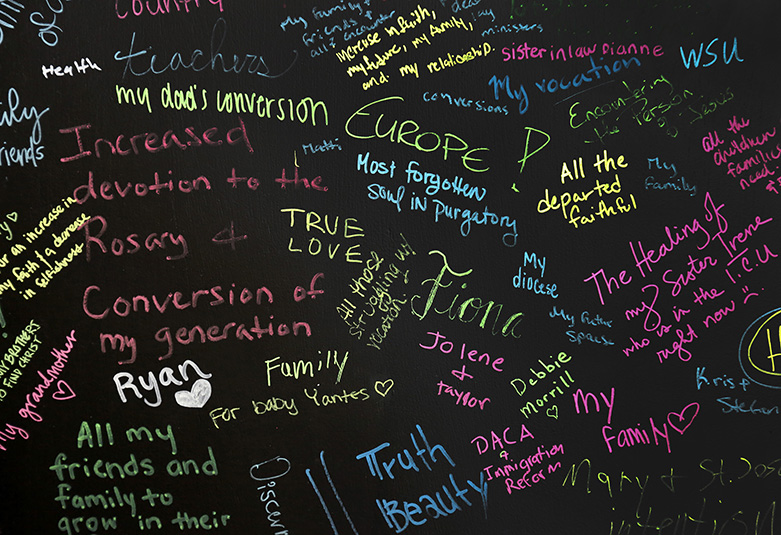 Country
of
Health
teachers
my dad's conversion
My family &
friends &
all I encounter
increase in faith,
my future, my family,
and my relationship.
ministers
sister in law Dianne
WSU
My vocation
conversions
Encountering
the Person
of Jesus
all the
children
families
need
Increased
devotion to the
Rosary &
Conversion of
my generation
Matti
EUROPE !
Most forgotten
soul in Purgatory
All the
departed
faithful
My
Family
friends
for an increase in
my faith & a decrease
in selfishness
TRUE
LOVE
All those
struggling w/
vocation
Fiona
My
diocese
My future
Spouse
The Healing of
my Sister Irene
who is in the I.C.U
right now
MY BROTHERS
TO FIND CHRIST
My grandmother
Ryan
Family
For baby Yantes
Jolene
&
taylor
Debbie
Morrill
My
Family
Kris &
All my
friends and
family to
grow in their
Discern
Truth
Beauty
DACA
&
Immigration
Reform
Mary & St. Jos
intention